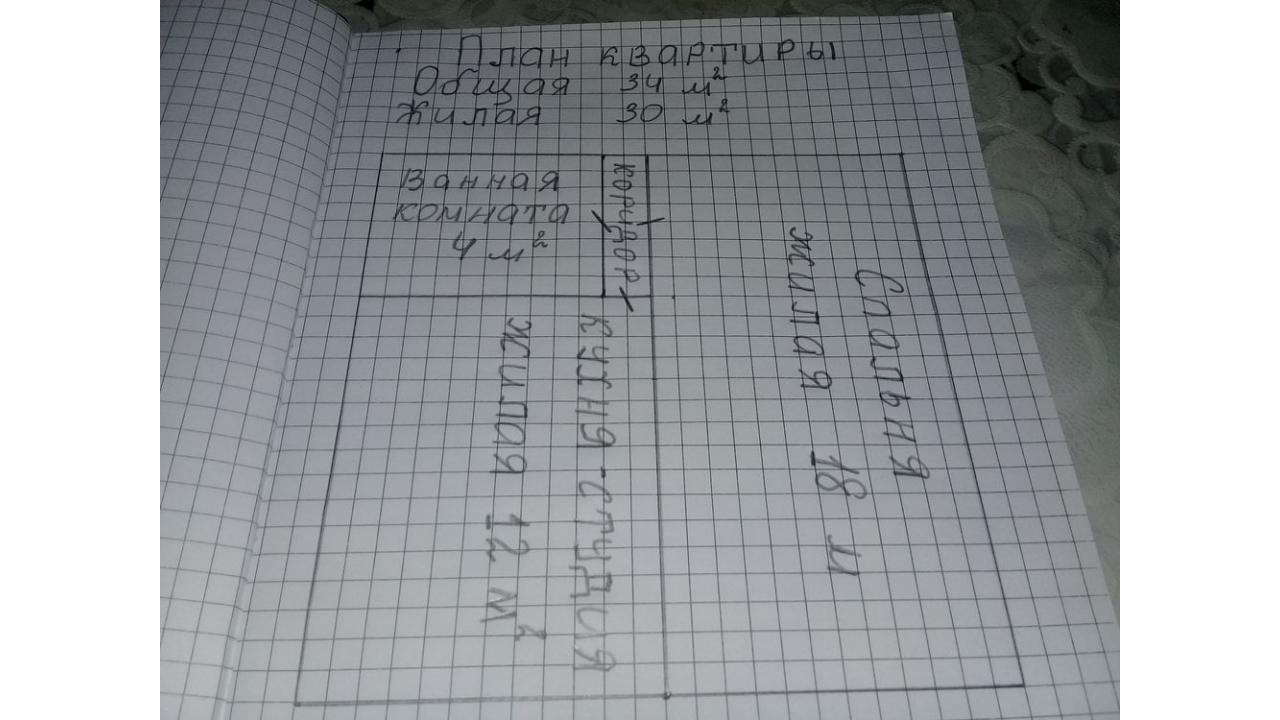 План квартиры
Общая 34 м²
Жилая 30 м²
Ванная
комната
4 м²
коридор
Спальня
жилая 18 м
кухня-студия
жилая 12 м²